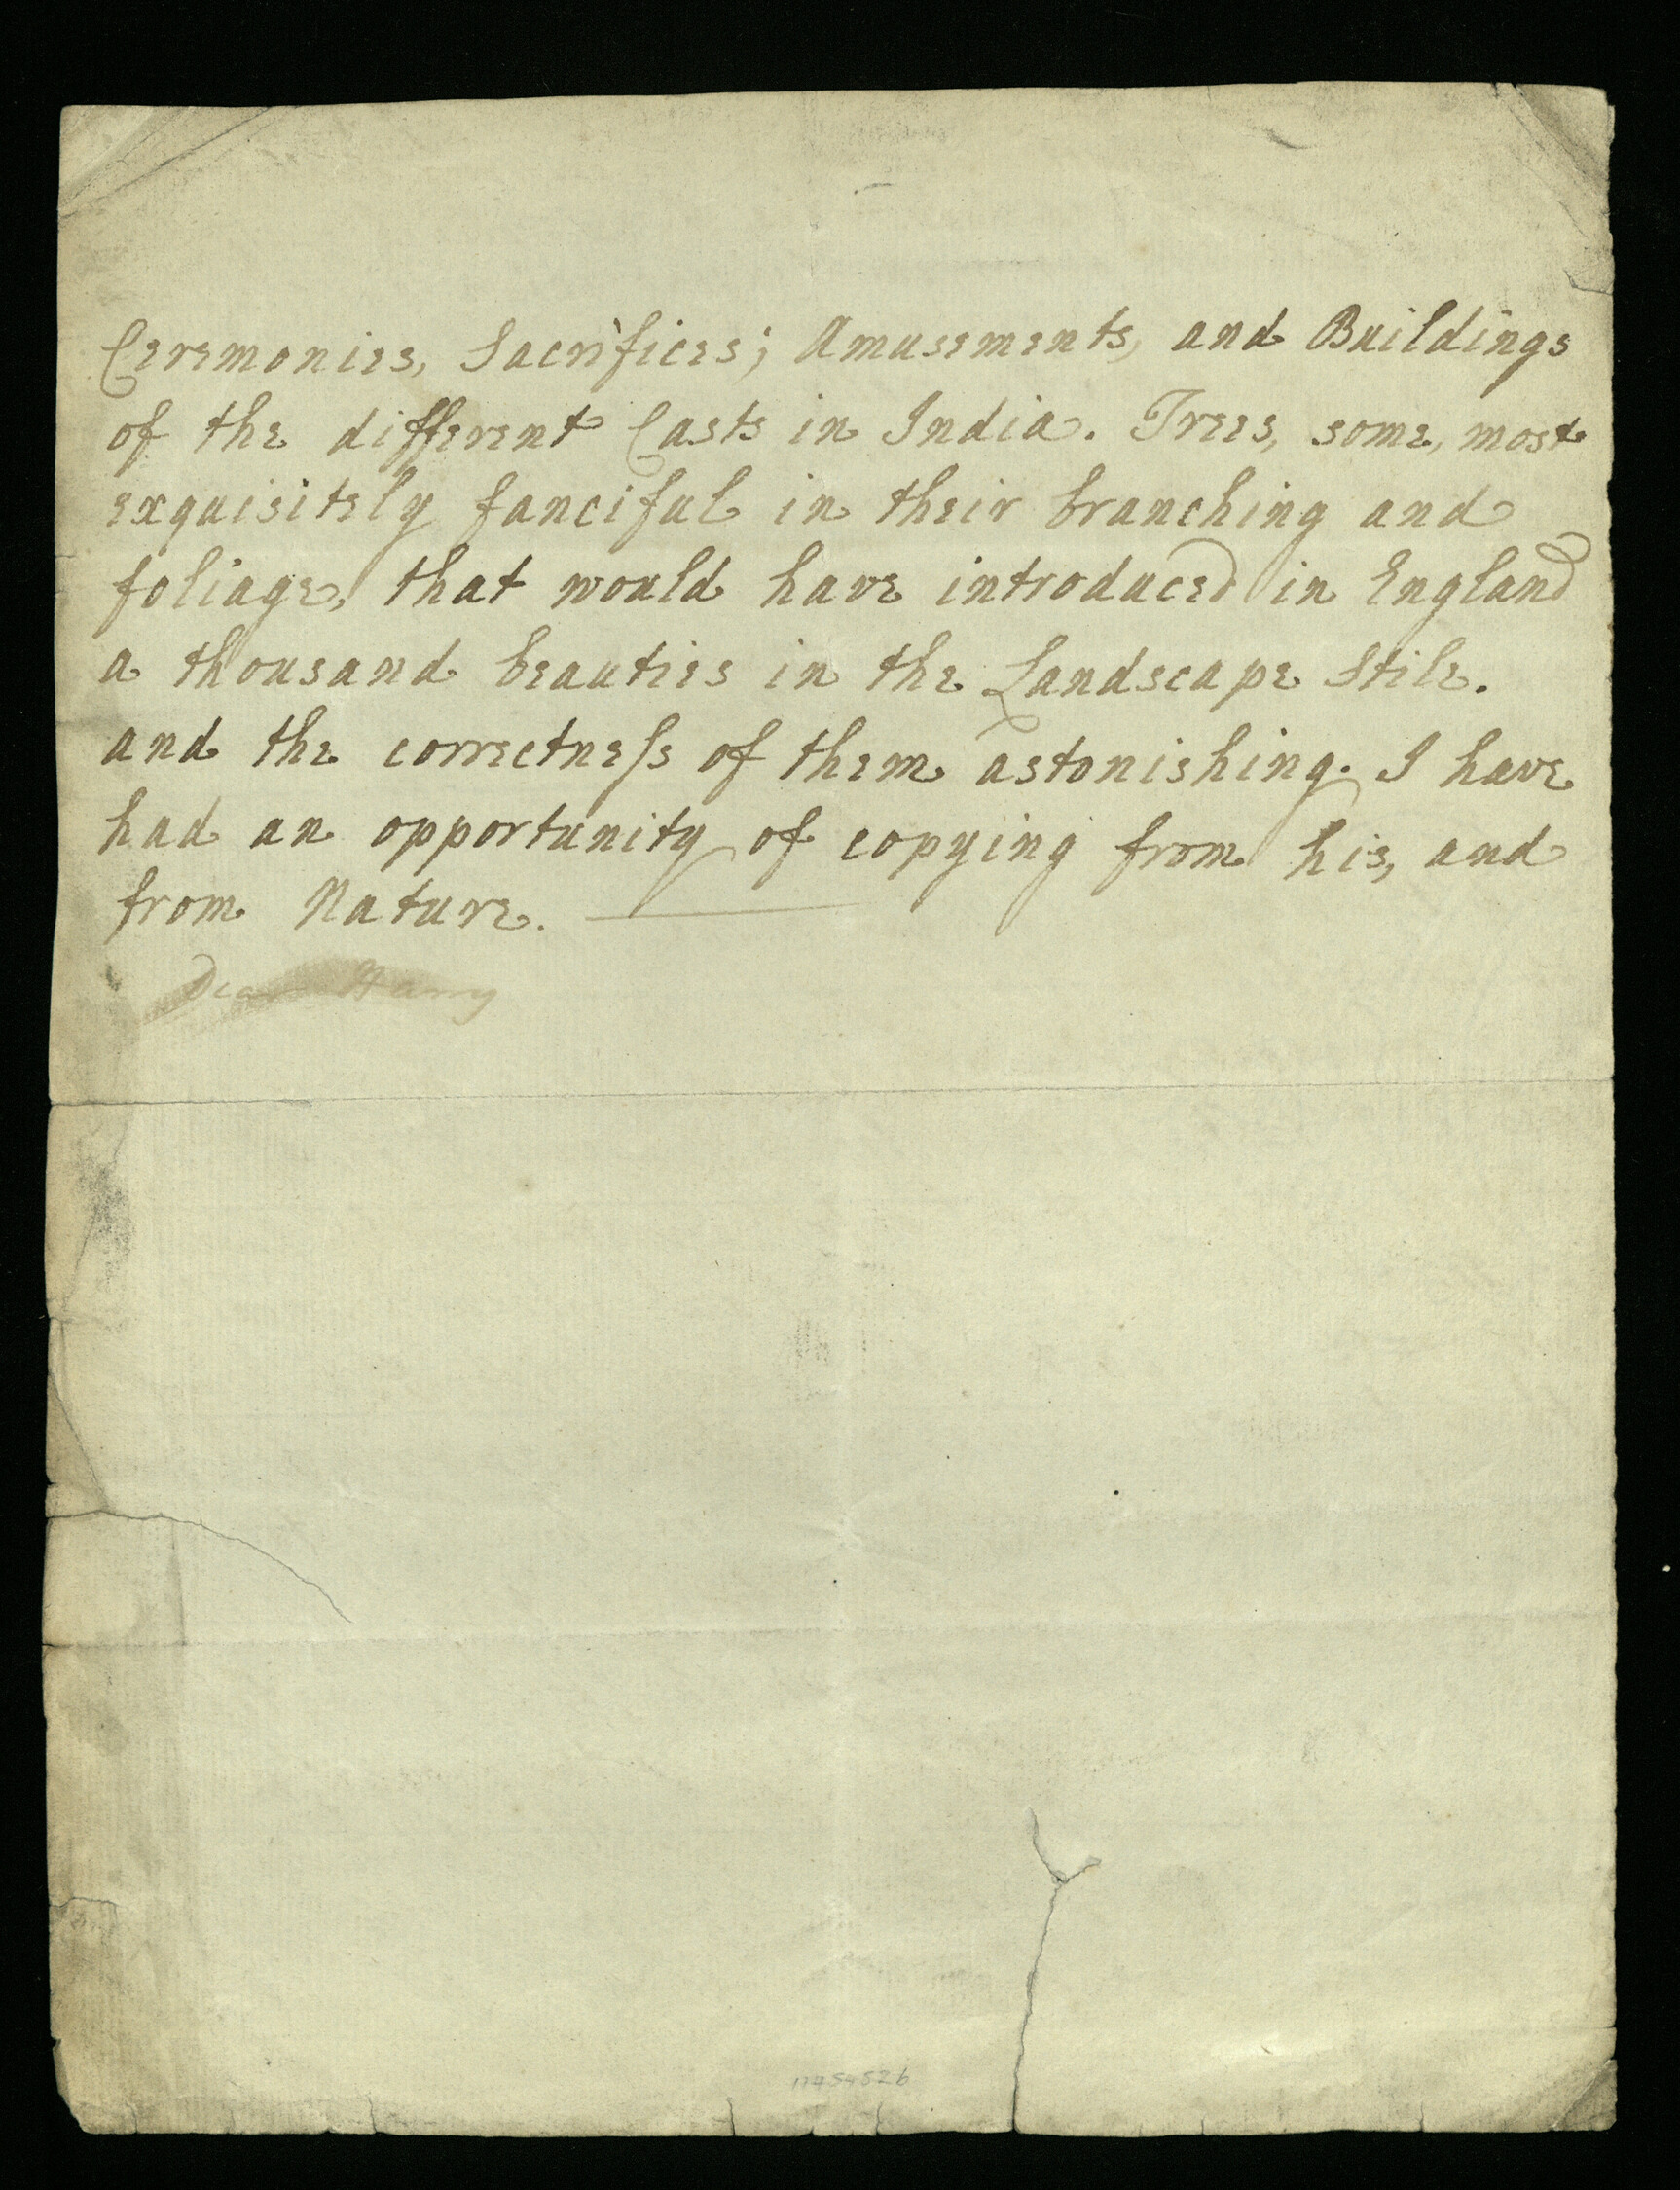 Ceremonies, Sacrifices; Amusements, and Buildings
of the different Casts in India. Trees, some, most
exquisitely fanciful in their branching and
foliage, that would have introduced in England
a thousand beauties in the Landscape Stile.
and the correctneſs of them astonishing. I have
had an opportunity of copying from his, and
from Nature.
Dear Harry